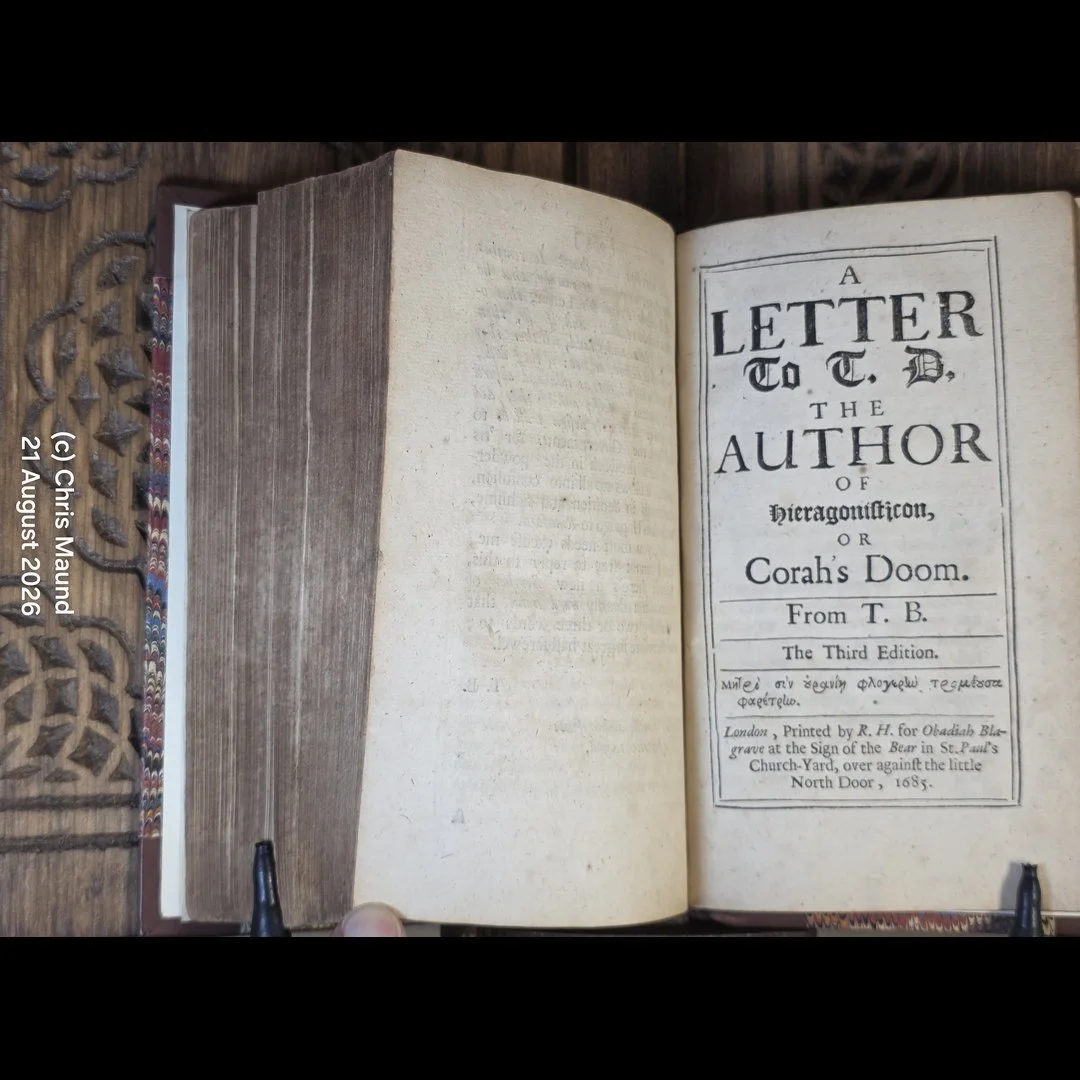 (c) Chris Maund
21 August 2026
A
LETTER
To T. D.
THE
AUTHOR
OF
Hieragoniſticon,
OR
Corah's Doom.
From T. B.
The Third Edition.
φαρέτρῳ.
London, Printed by R. H. for Obadiah Bla-
grave at the Sign of the Bear in St. Paul's
Church-Yard, over againſt the little
North Door, 1685.